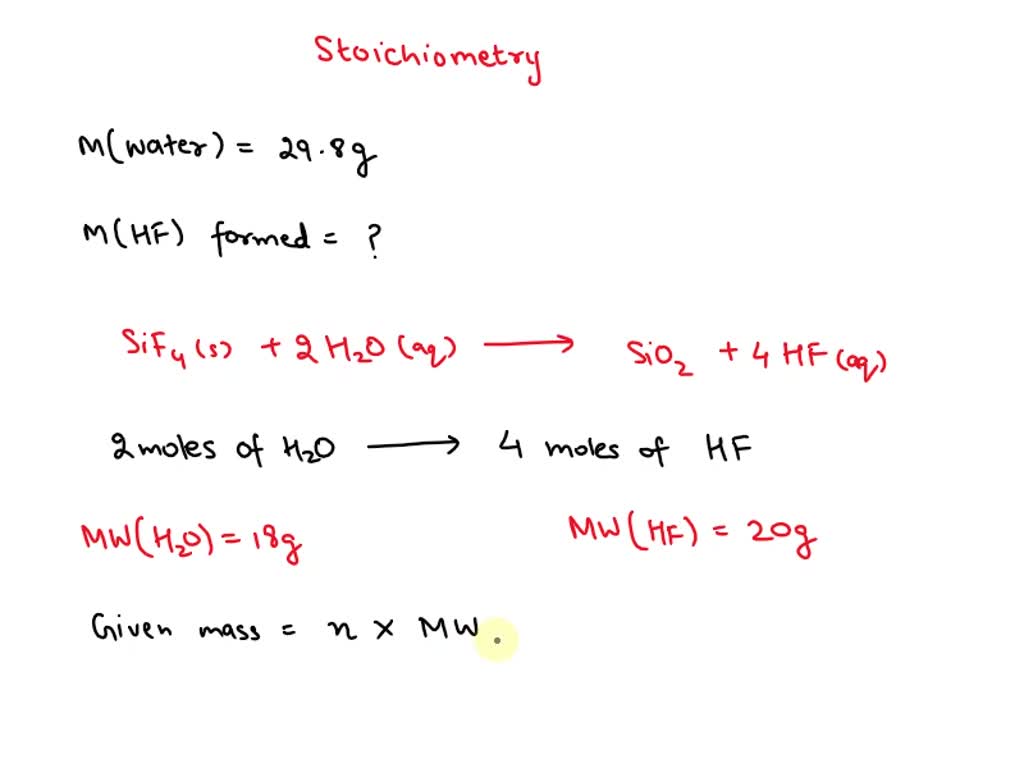 Stoichiometry
M(water) = 29.8g
M(HF) formed = ?
SiF₄(s) + 2H₂O(aq) ⟶ SiO₂ + 4HF(aq)
2moles of H₂O ⟶ 4 moles of HF
MW(H₂O) = 18g MW(HF) = 20g
Given mass = n × MW